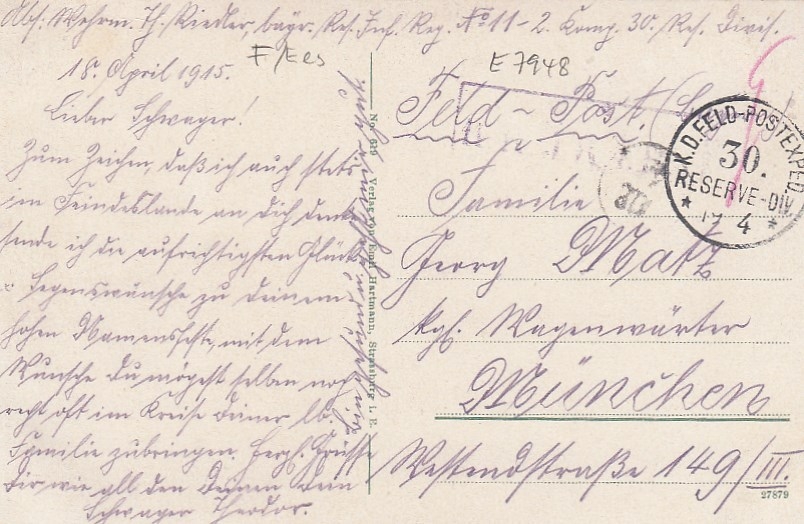 Abs: Wehrm. Th. Riedler, bayr. Res. Inf. Reg. No 11 - 2. Komp. 30. Res. Divis.
F/Ees
E 7948
18. April 1915.
Lieber Schwager!
Zum Zeichen, daß ich auch stets
im Feindeslande an dich denke
sende ich die aufrichtigsten Glück
Segenswünsche zu deinem
hohen Namensfeste, mit dem
Wunsche du mögest selben noch
recht oft im Kreise deiner lb.
Familie zubringen. Herzl. Grüsse
dir wie all den Deinen Dein
Schwager Theodor.
No. 619 Verlag von Emil Hartmann, Strassburg i. E.
Feld-Post.
K.D. FELD-POSTEXPED.
30.
RESERVE-DIV.
* 19 4 *
Familie
Georg Matz
kgl. Wagenwärter
München
Westendstraße 149/III.
27879